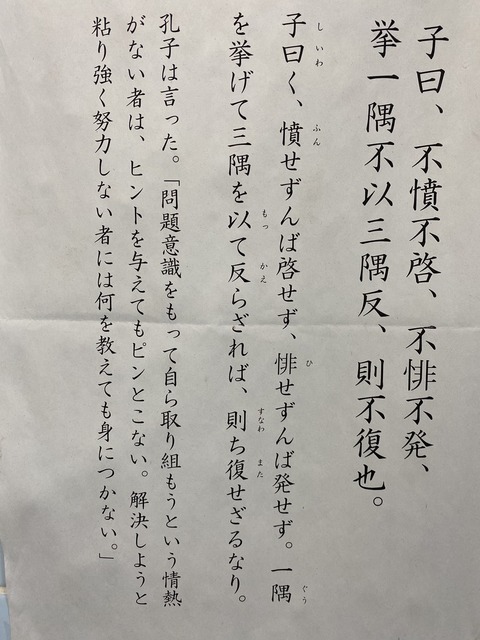 子曰、不憤不啓、不悱不発、
挙一隅不以三隅反、則不復也。
子曰く、憤せずんば啓せず、悱せずんば発せず。一隅
を挙げて三隅を以て反らざれば、則ち復せざるなり。
孔子は言った。「問題意識をもって自ら取り組もうという情熱
がない者は、ヒントを与えてもピンとこない。解決しようと
粘り強く努力しない者には何を教えても身につかない。」